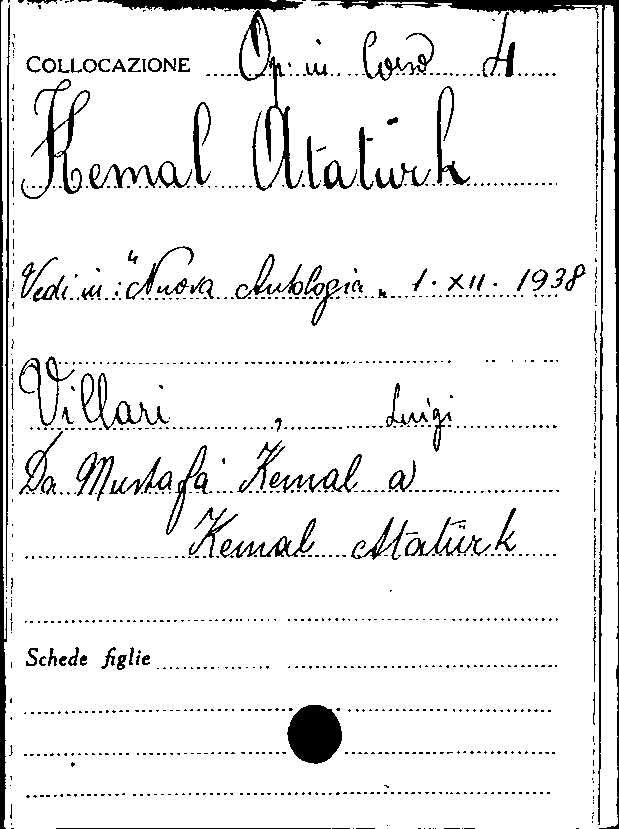 COLLOCAZIONE Op. in Corso 4
Kemal Atatürk
Vedi in: "Nuova Antologia„ 1. XII. 1938
Villari, Luigi
Da Mustafà Kemal a
Kemal Atatürk
Schede figlie